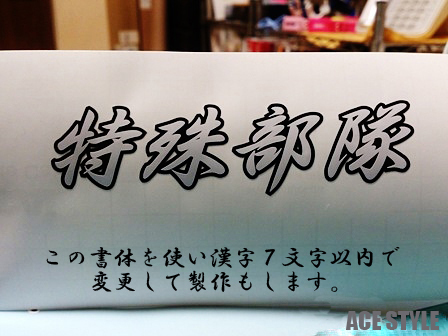 特殊部隊
この書体を使い漢字7文字以内で
変更して製作もします。
ACE STYLE